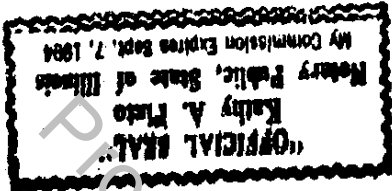 "OFFICIAL SEAL"
Kathy A.
Notary Public, State of Illinois
My Commission Expires Sept. 7, 1994